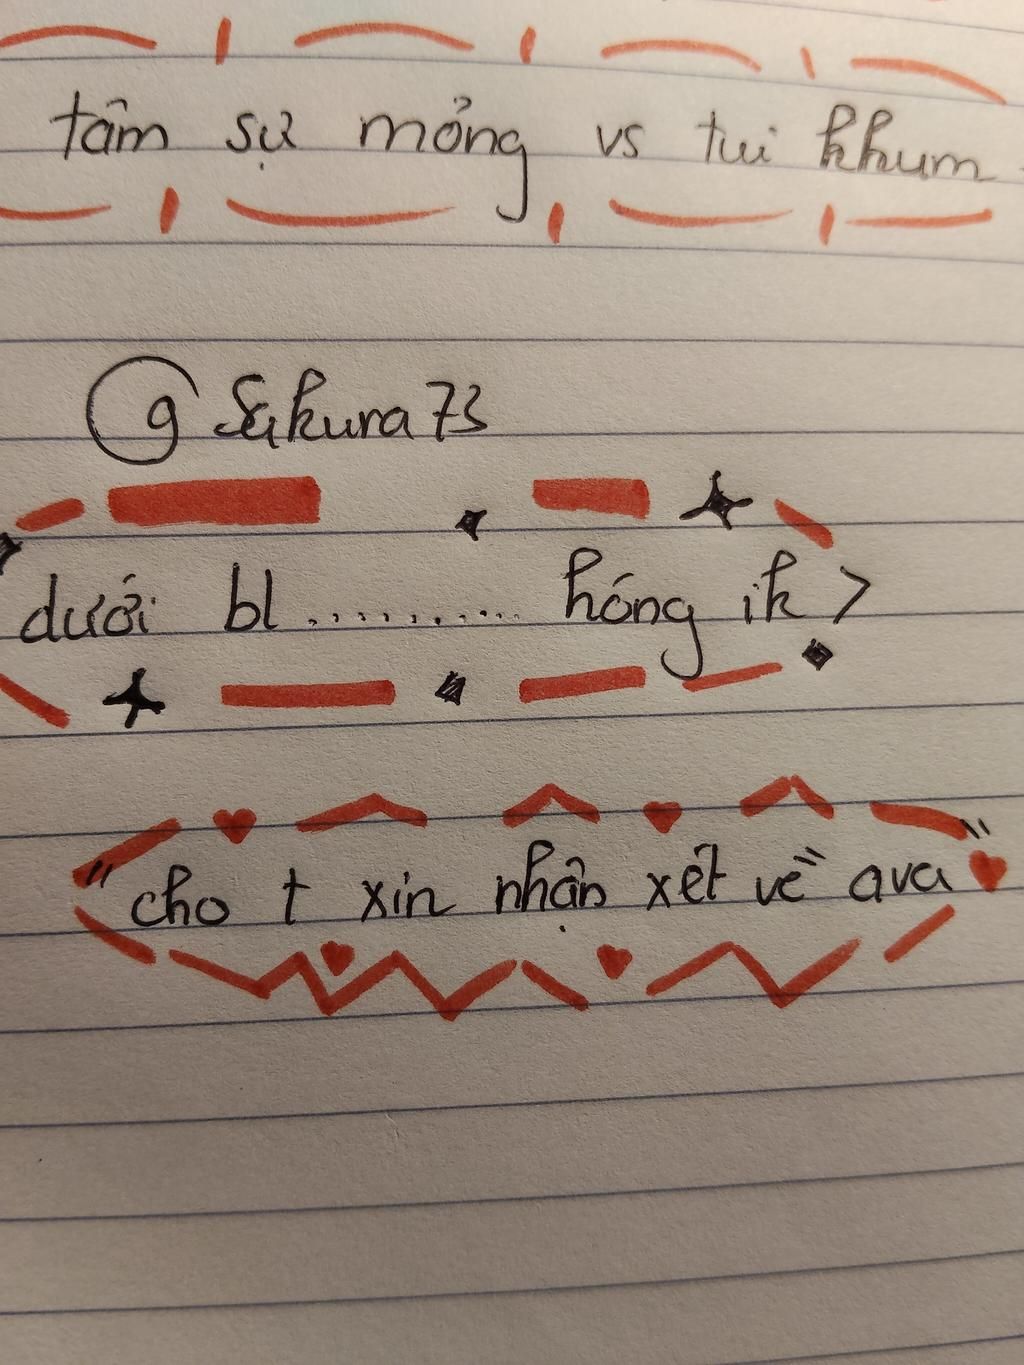 tâm sự mỏng vs tui khum
@Sakura73
dưới bl.......... hóng ik >
"cho t xin nhận xét về ava"